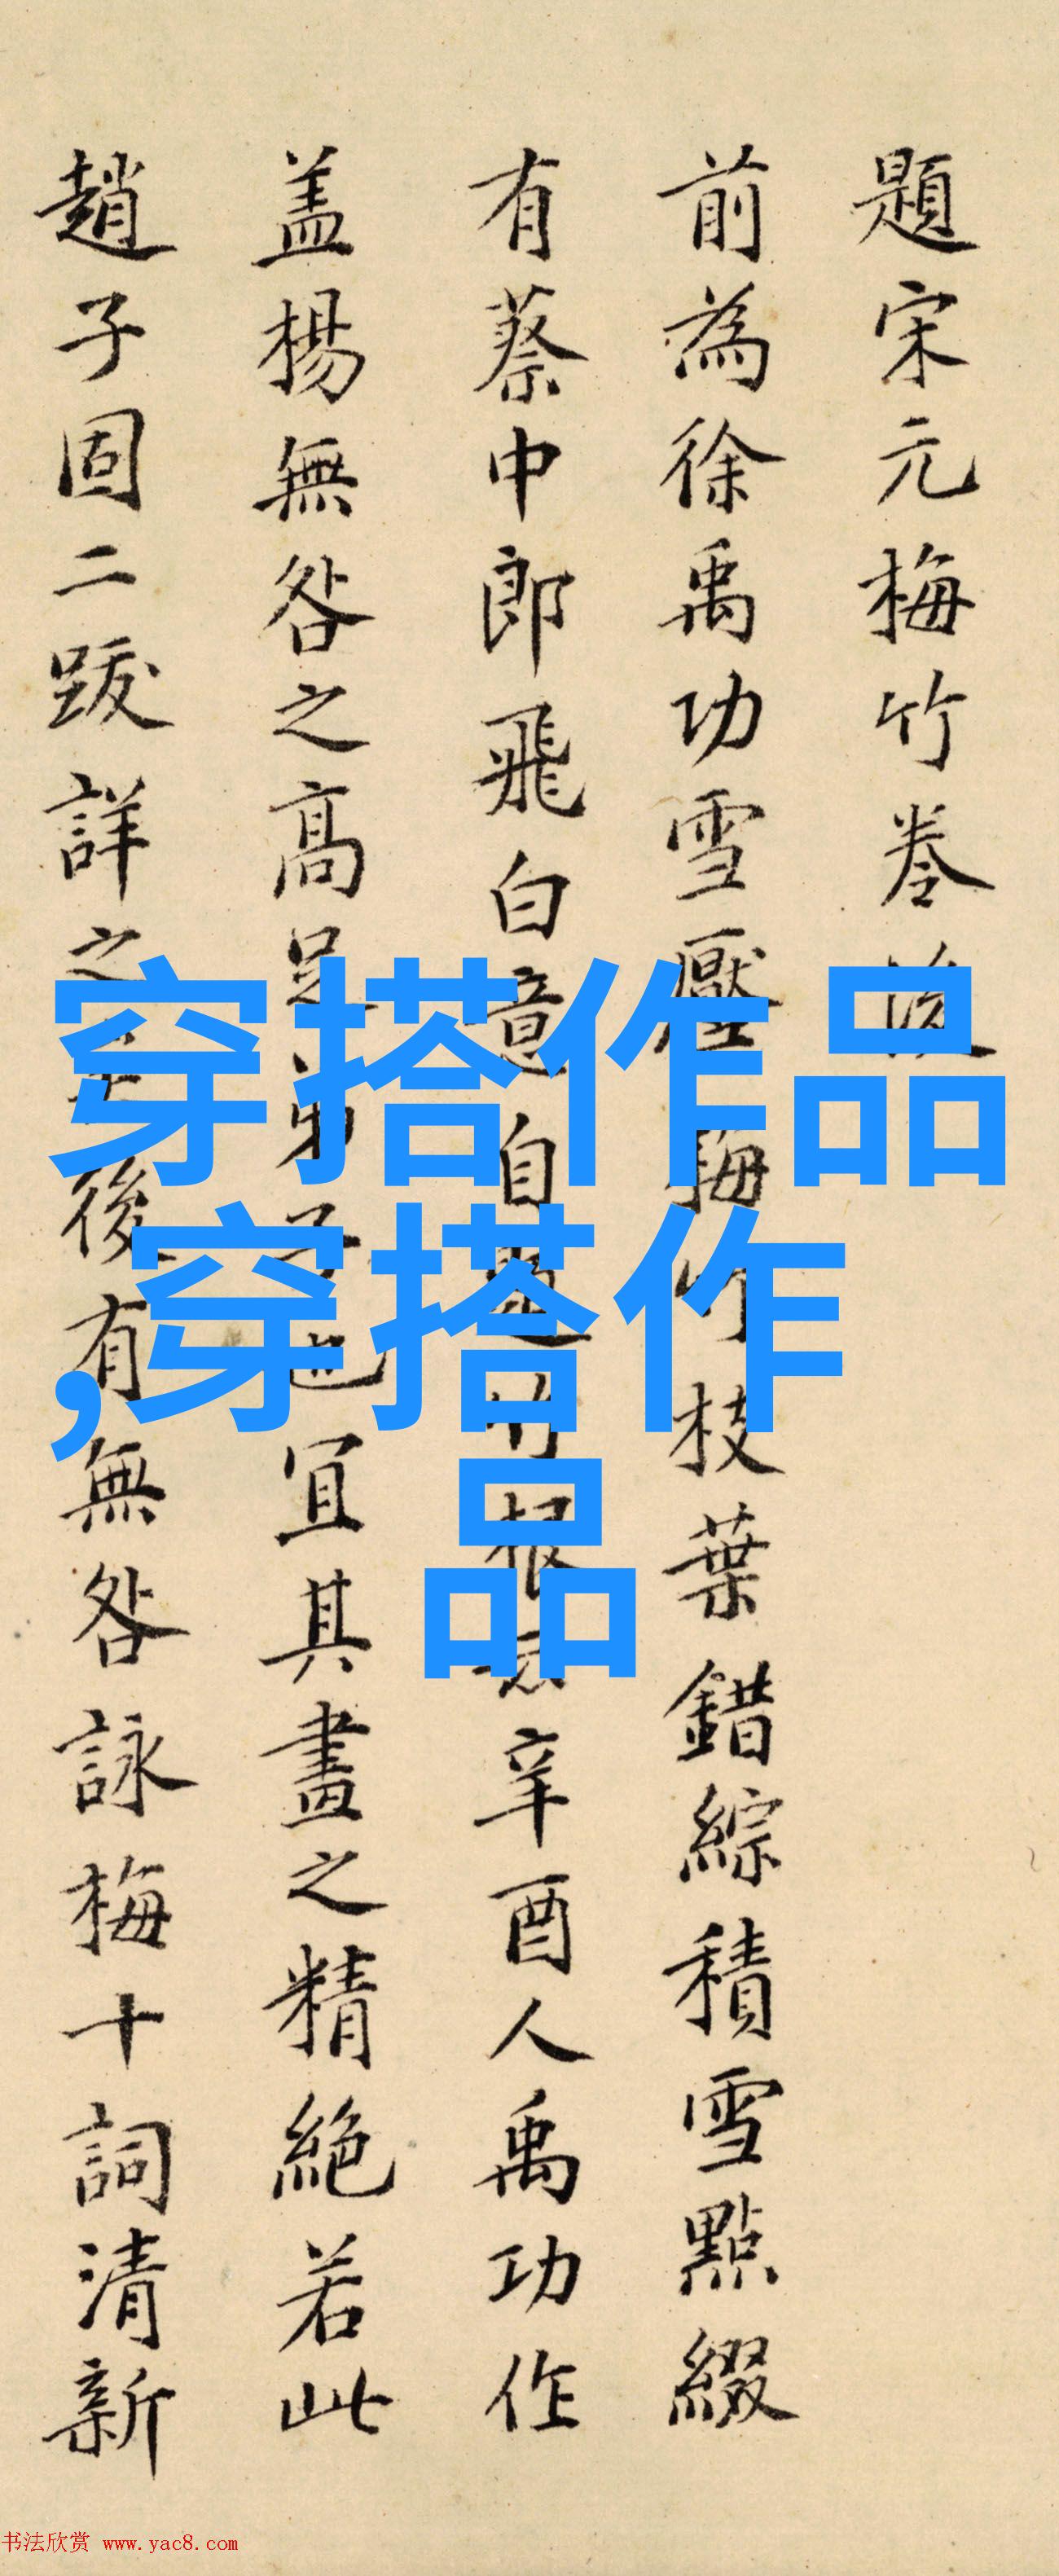 題宋元梅竹卷後
前為徐禹功雪壓梅竹枝葉錯綜積雪點綴
有蔡中郎飛白意自題竹根云辛酉人禹功作
盖楊無咎之高足弟子也宜其畫之精絕若此
趙子固二跋詳之後有無咎詠梅十詞清新
穿搭作品
,穿搭作
品
书法欣赏 www.yac8.com